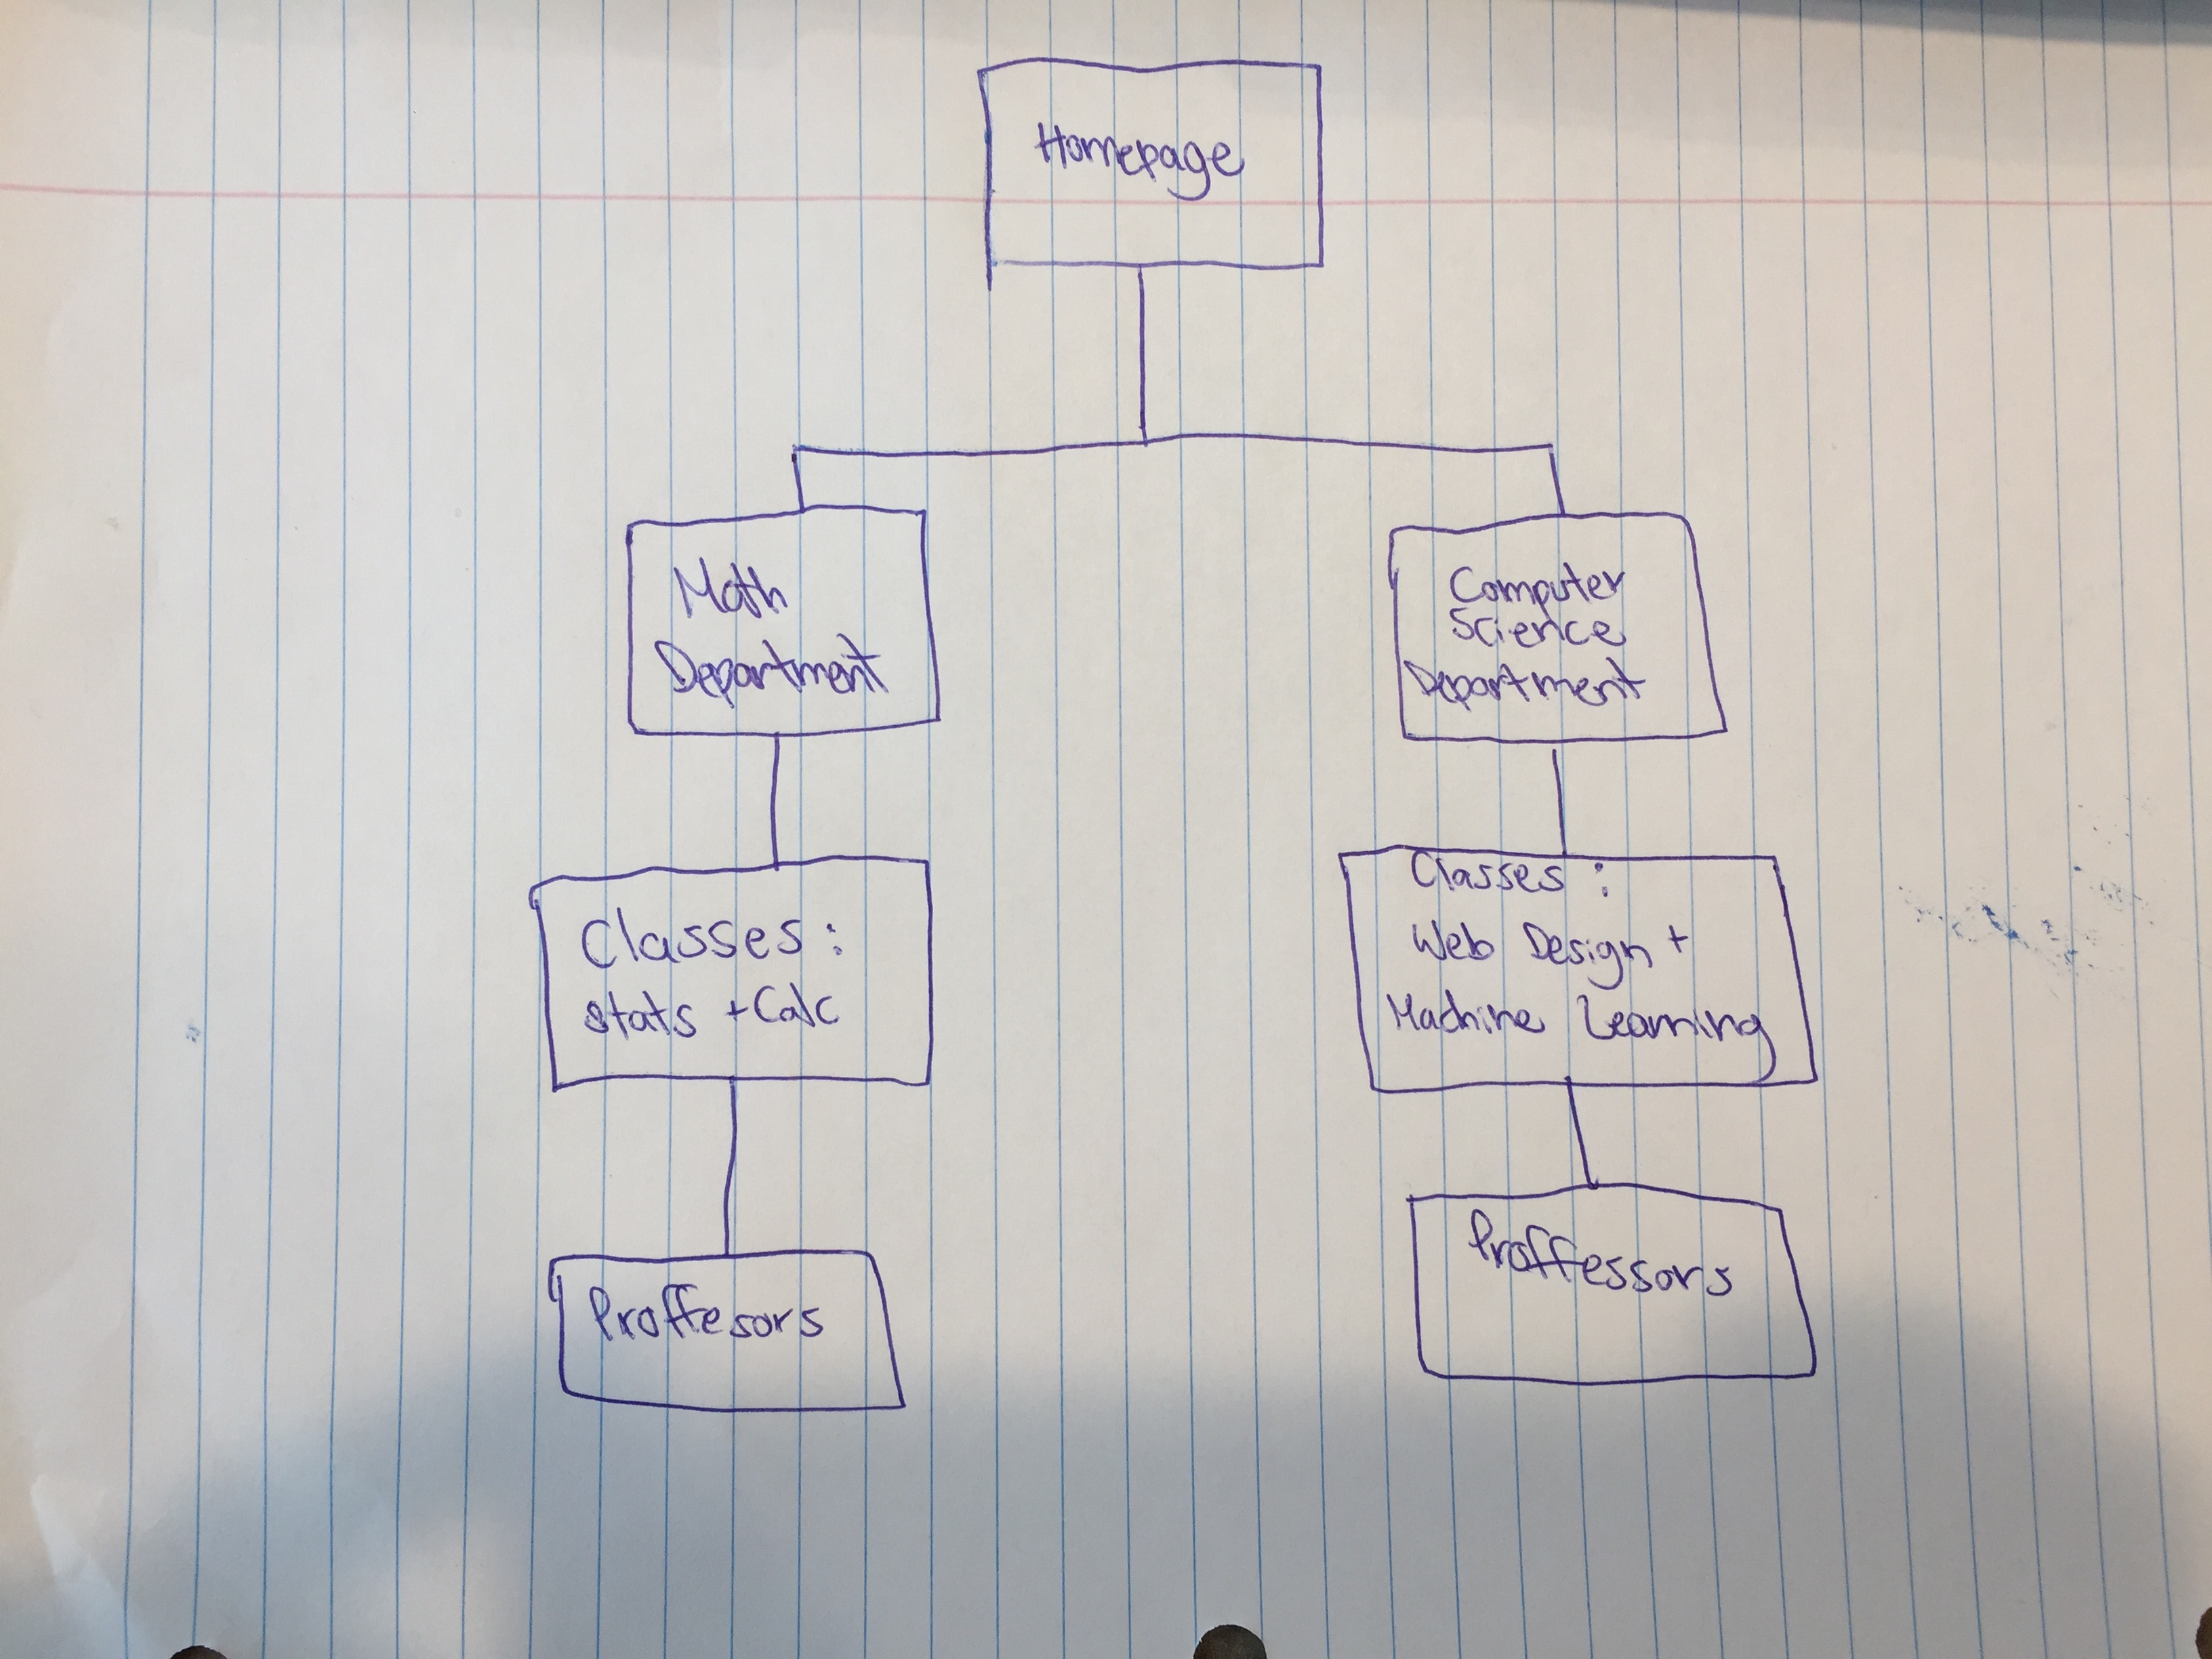 Homepage
Math
Department
Classes:
stats + Calc
Proffesors
Computer
Science
Department
Classes:
Web Design +
Machine Learning
Proffessors